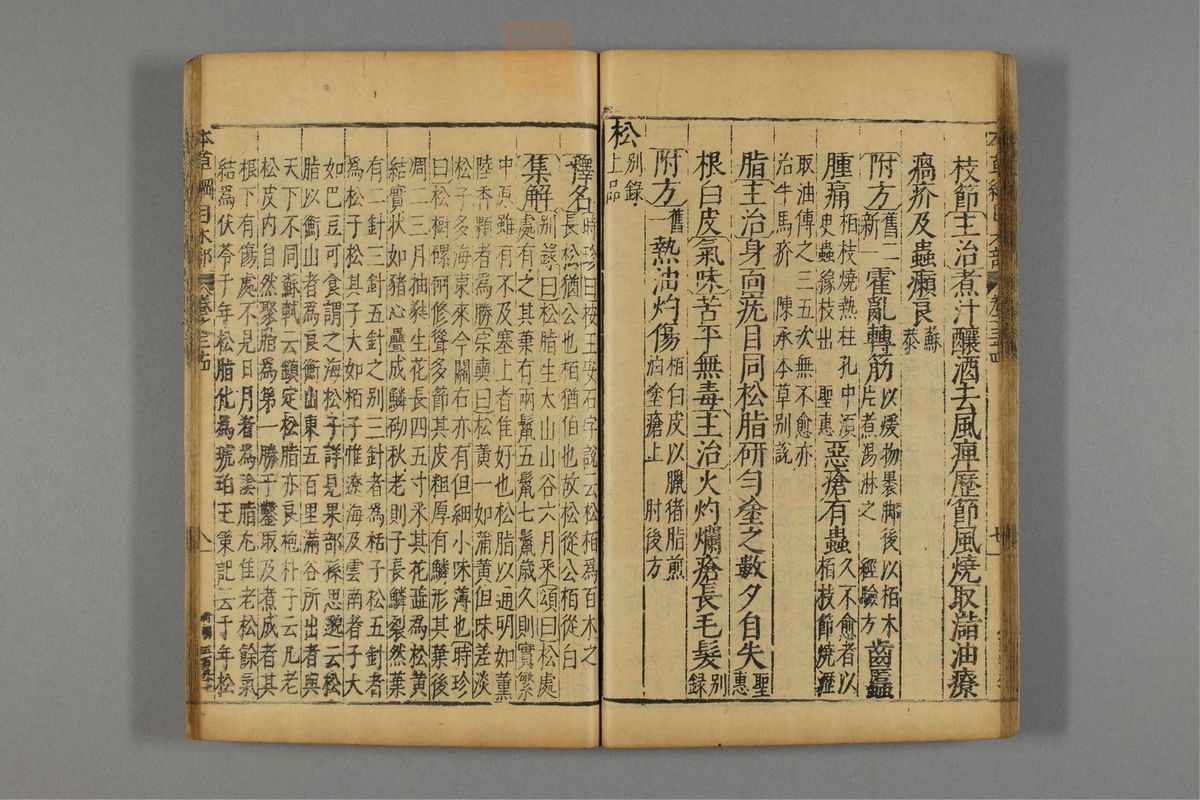 枝節主治煮汁釀酒去風痺歷節風燒取㴿油療
瘑疥及蟲癩良蘇恭
附方舊二新一霍亂轉筋以煖物裹脚後以栢木片煮湯淋之經驗方齒䘌蟲
腫痛栢枝燒熱柱孔中須臾蟲緣枝出聖惠惡瘡有蟲久不愈者以栢枝節燒瀝
取油傅之三五次無不愈亦治牛馬疥陳承本草别說
脂主治身面疣目同松脂研勻塗之數夕自失聖惠
根白皮氣味苦平無毒主治火灼爛瘡長毛髮别錄
附方舊一熱油灼傷栢白皮以臘猪脂煎油塗瘡上肘後方
松别錄上品
釋名時珍曰按王安石字說云松栢爲百木之
長松猶公也栢猶伯也故松從公栢從白
集解别錄曰松脂生太山山谷六月采頌曰松處
處有之其葉有兩鬣五鬣七鬣歲久則實繁
中原雖有不及塞上者佳好也松脂以通明如薰
陸香顆者爲勝宗奭曰松黃一如蒲黃但味差淡
松子多海東來今關右亦有但細小味薄也時珍
曰松樹磥砢修聳多節其皮粗厚有鱗形其葉後
凋二三月抽蕤生花長四五寸采其花蕋爲松黃
結實狀如猪心疊成鱗砌秋老則子長鱗裂然葉
有二針三針五針之别三針者爲栝子松五針者
爲松子松其子大如栢子惟遼海及雲南者子大
如巴豆可食謂之海松子詳見果部孫思邈云松
脂以衡山者爲良衡山東五百里滿谷所出者與
天下不同蘇軾云鎮定松脂亦良抱朴子云凡老
松皮内自然聚脂爲第一勝于鑿取及煮成者其
根下有傷處不見日月者爲陰脂尤佳老松餘氣
結爲伏苓千年松脂化爲琥珀玉策記云千年松
本草綱目木部
卷之三十四